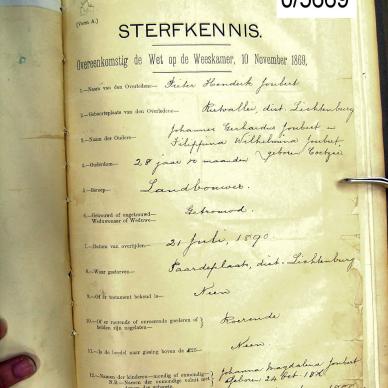 (Vorm A.)
0/5669
STERFKENNIS.
Overeenkomstig de Wet op de Weeskamer, 10 November 1869.
1.—Naam van den Overledene— Pieter Hendrik Joubert
2.—Geboorteplaats van den Overledene— Rietvallei, dist. Lichtenburg
3.—Naam der Ouders Johannes Gerhardus Joubert en
Filippina Wilhelmina Joubert
geboren Coetzee
4.—Ouderdom— 28 jaar maanden
5.—Beroep— Landbouwer.
6.—Getrouwd of ongetrouwd—
Weduwenaar of Weduwe— Getrouwd.
7.—Datum van overlijden— 21 Juli, 1890.
8.—Waar gestorven— Paardeplaats, dist. Lichtenburg
9.—Of er testament bekend is— Neen
10.—Of er roerende of onroerende goederen of
beiden zijn nagelaten— Roerende
11.—Is de boedel naar gissing boven de Neen
12.—Namen der kinderen—mondig of onmondig— Johanna Magdalena Joubert
N.B.—Namen der onmondige minst met Geboren 24 Oct.